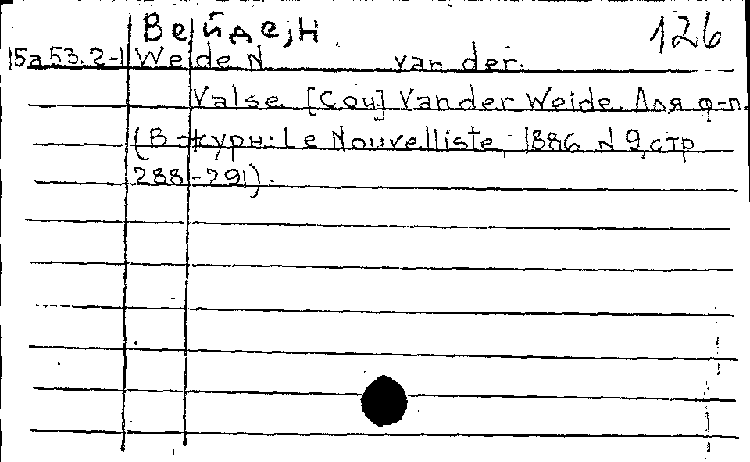 Вейде, Н 126
15a.53.2-1 Weide N van der.
Valse. [Соч] Van der Weide. Для ф-п.
(В журн: Le Nouvelliste, 1886 N 9, стр
288-291).